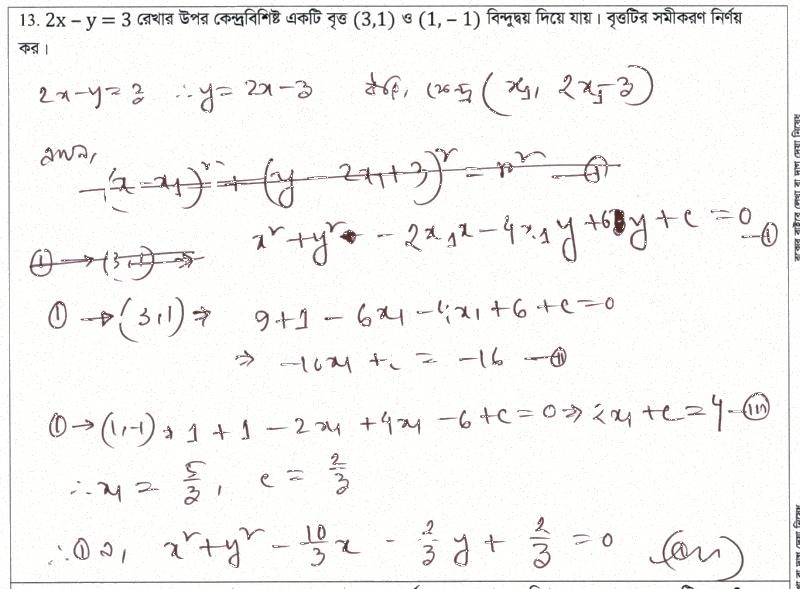 13. 2x – y = 3 রেখার উপর কেন্দ্রবিশিষ্ট একটি বৃত্ত (3,1) ও (1, – 1) বিন্দুদ্বয় দিয়ে যায়। বৃত্তটির সমীকরণ নির্ণয়
কর।
2x – y = 3 ∴ y = 2x – 3 ধরি, কেন্দ্র (x₁, 2x₁ – 3)
(x – x₁)² + (y – 2x₁ + 3)² = r² — ①
x² + y² – 2x₁x – 4x₁y + 6y + c = 0 — ①
① → (3,1) ⇒
① → (3,1) ⇒ 9 + 1 – 6x₁ – 4x₁ + 6 + c = 0
⇒ –10x₁ + c = –16 — ⑪
① → (1,-1) ⇒ 1 + 1 – 2x₁ + 4x₁ – 6 + c = 0 ⇒ 2x₁ + c = 4 — (iii)
∴ x₁ = 5/3, c = 2/3
∴ ① নং, x² + y² – 10/3 x – 2/3 y + 2/3 = 0 (Ans)